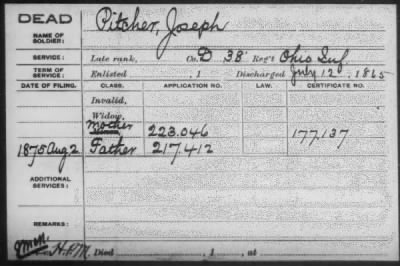 DEAD
NAME OF SOLDIER: Pitcher, Joseph
SERVICE: Late rank, Co. D 38 Reg't Ohio Inf.
TERM OF SERVICE: Enlisted , 1 Discharged July 12, 1865
DATE OF FILING. CLASS. APPLICATION NO. LAW. CERTIFICATE NO.
Invalid,
Widow,
Mother 223.046 177.137
1875 Aug 2 Father 217.412
ADDITIONAL SERVICES:
REMARKS:
H.P.M. Died , 1 , at